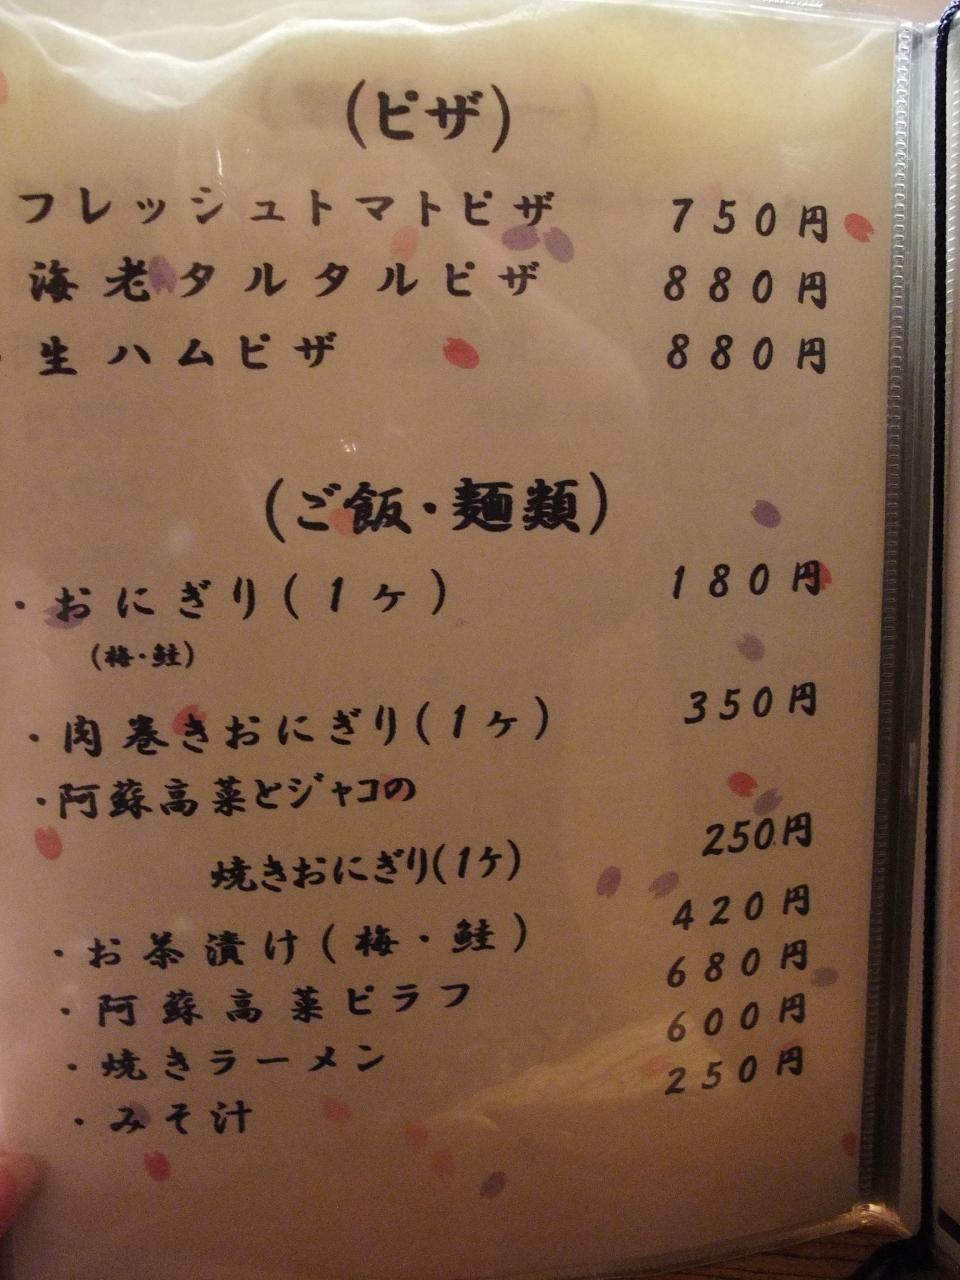 (ピザ)
フレッシュトマトピザ 750円
海老タルタルピザ 880円
・生ハムピザ 880円
(ご飯・麺類)
・おにぎり(1ヶ) 180円
(梅・鮭)
・肉巻きおにぎり(1ヶ) 350円
・阿蘇高菜とジャコの
焼きおにぎり(1ケ) 250円
・お茶漬け(梅・鮭) 420円
・阿蘇高菜ピラフ 680円
・焼きラーメン 600円
・みそ汁 250円